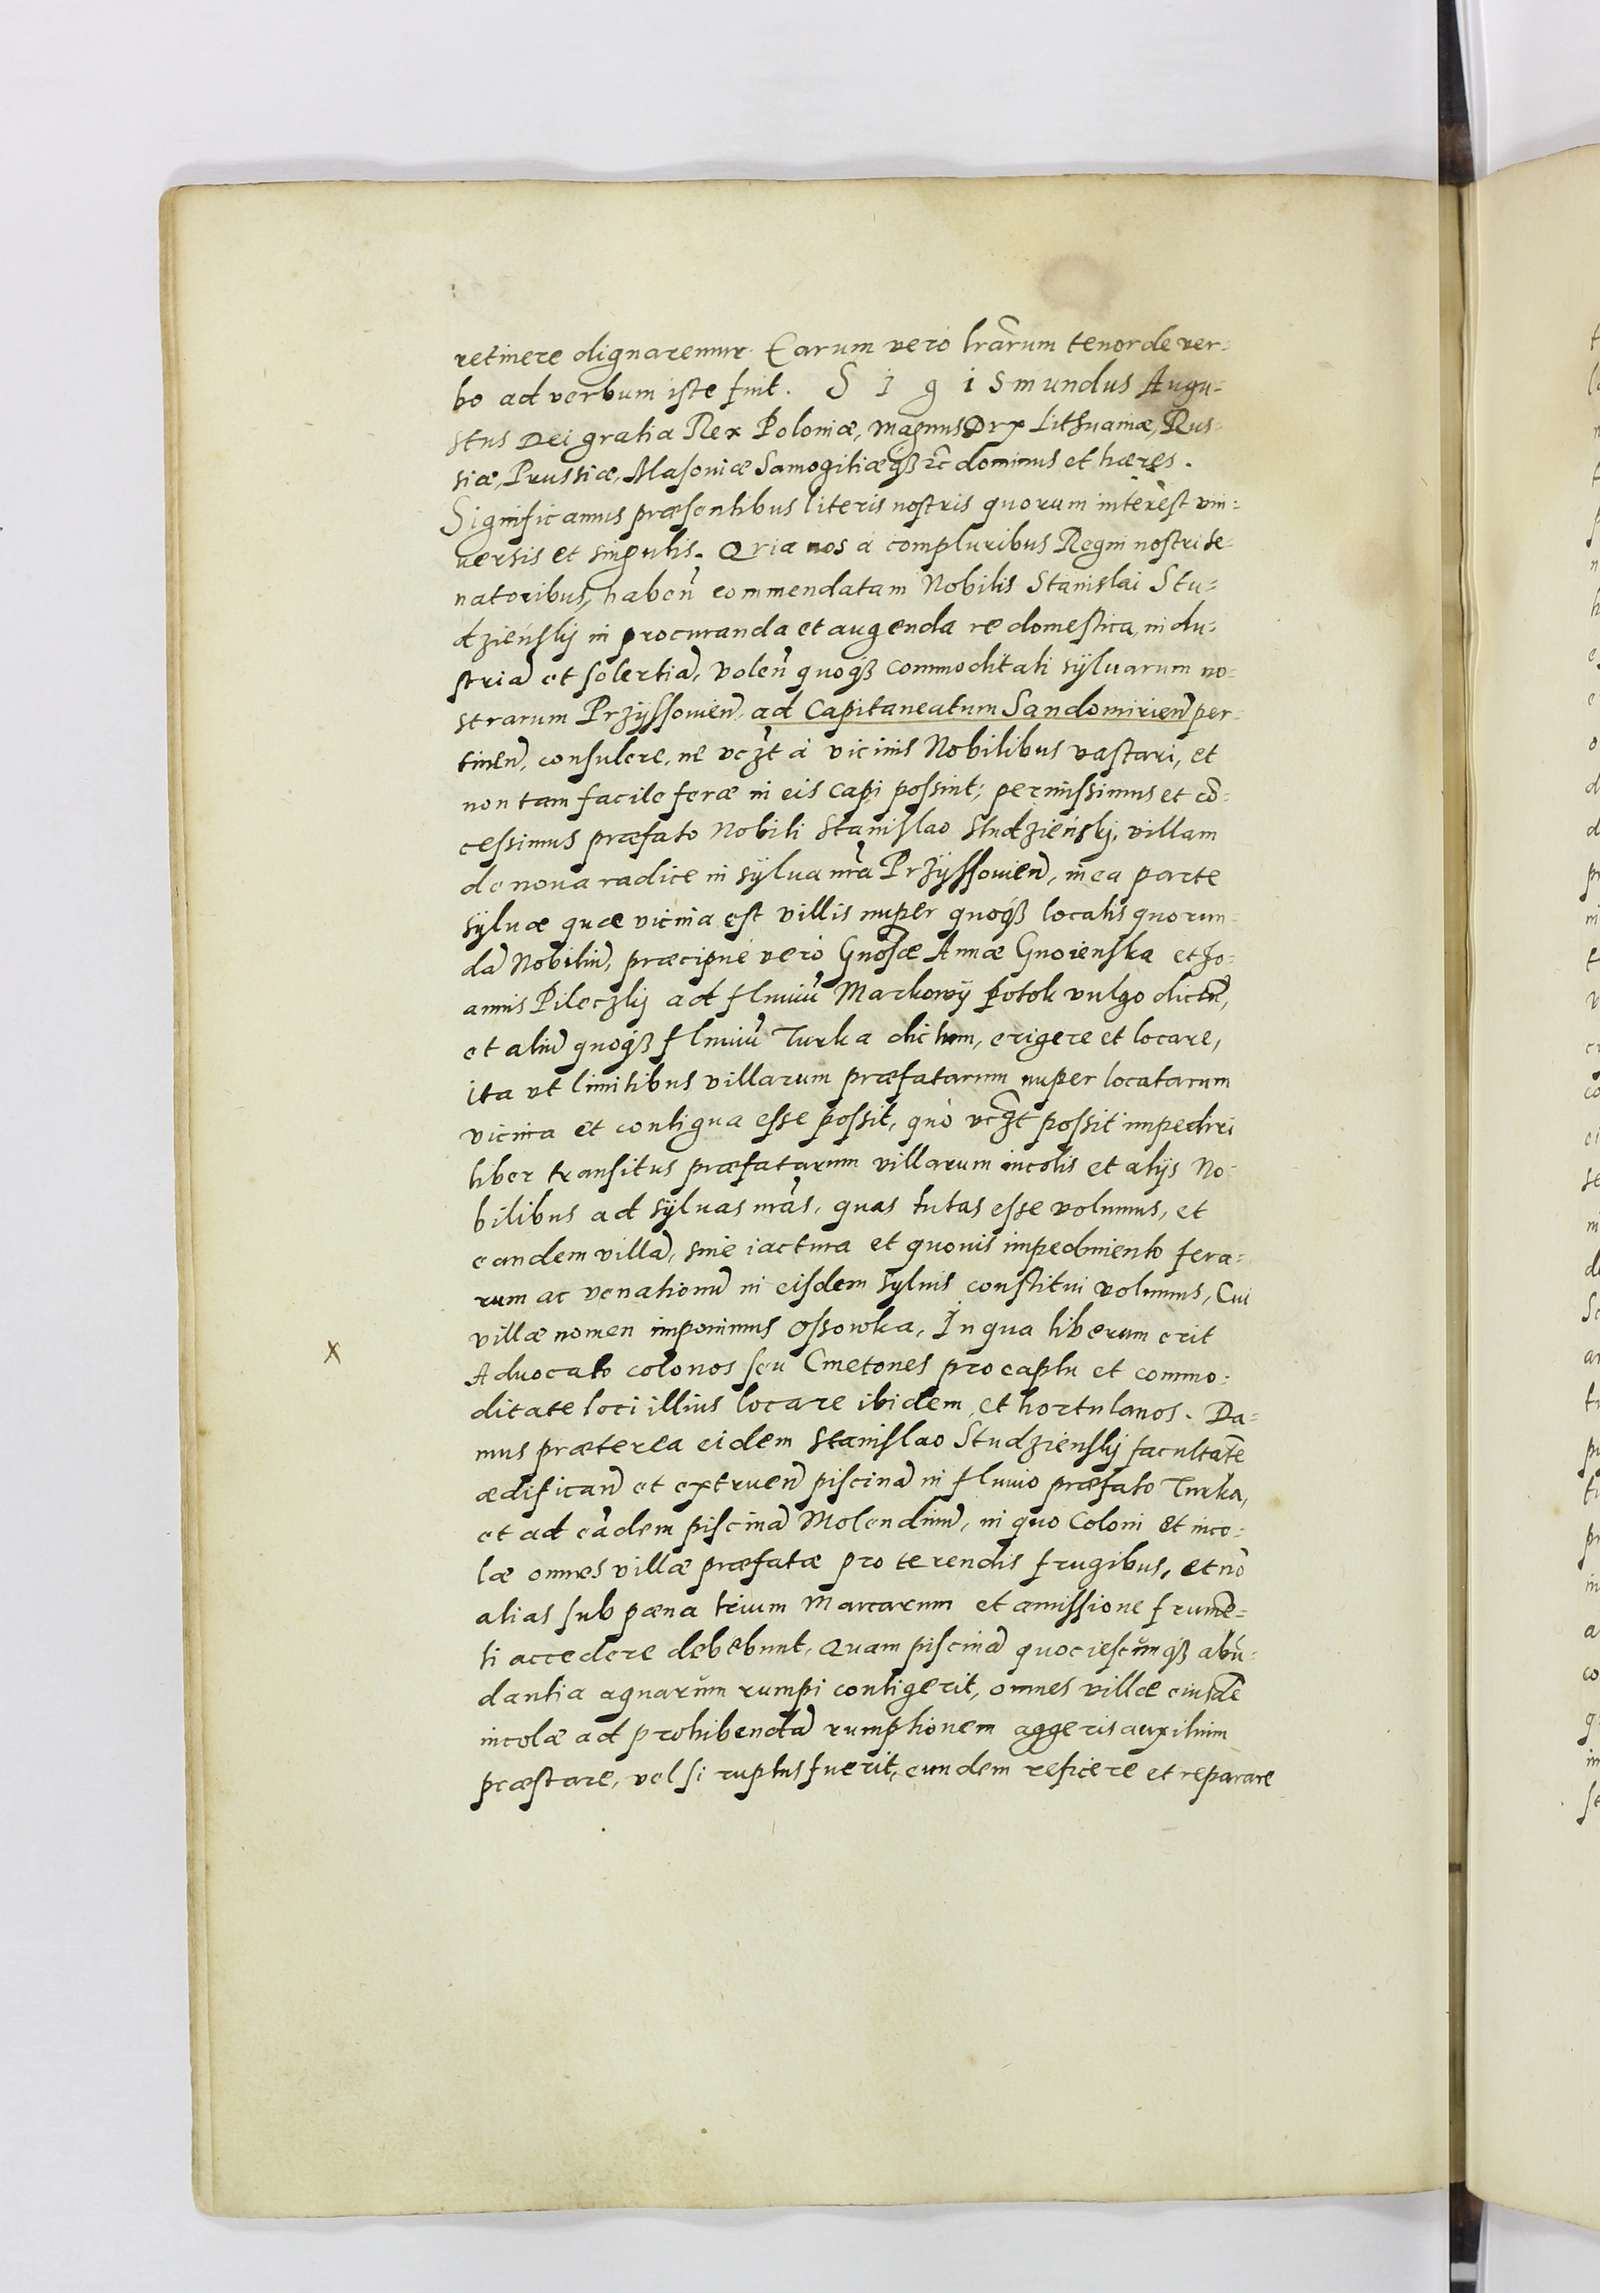 retinere dignaremur. Earum vero lrarum tenor de ver-
bo ad verbum iste fuit. Sigismundus Augu-
stus Dei gratia Rex Poloniæ, magnus Dux Lithuaniæ, Rus-
siæ, Prussiæ, Masoniæ Samogitiæqȝ etc dominus et hæres.
Significamus præsentibus literis nostris quorum interest vni-
uersis et singulis. Quia nos à compluribus Regni nostri Se-
natoribus, haben̄ commendatam Nobilis Stanislai Stu-
dzieńskij in procuranda et augenda re domestica, indu-
striā et solertiā, volen̄ quoqȝ commoditati syluarum no-
strarum Przyssouien̄, ad Capitaneatum Sandomirien̄ per-
tinen̄, consulere, ne vcȝt à vicinis Nobilibus vastari, et
non tam facile feræ in eis capi possint; permissimus et cō-
cessimus præfato Nobili Stanislao Studzieńskj, villam
de noua radice in sylua nrā Przyssouien̄, in ea parte
syluæ quæ vicina est villis nuper quoqȝ locatis quorun-
dā Nobiliū, præcipuè verò Gnosæ Annæ Gnoienska et Jo-
annis Pileczkij ad fluuiū Markowÿ potok vulgo dictū,
et aliū quoqȝ fluuiū Turka dictum, erigere et locare,
ita vt limitibus villarum præfatarum nuper locatarum
vicina et contigua esse possit, quò vcȝt possit impediri
liber transitus præfatarum villarum incolis et alijs No-
bilibus ad syluas nrās, quas tutas esse volumus, et
eandem villā, sine iactura et quouis impedimento fera-
rum ac venationū in eisdem syluis constitui volumus, Cui
villæ nomen imponimus Ossowka, In qua liberum erit
x
Aduocato colonos seu Cmetones pro captu et commo-
ditate loci illius locare ibidem, et hortulanos. Da-
mus præterea eidem Stanislao Studzienskij facultatē
ædifican̄ et extruen̄ piscinā in fluuio præfato Turka,
et ad eādem piscinā Molendinū, in quo Coloni et inco-
læ omnes villæ præfatæ pro terendis frugibus, et nō
alias sub pæna trium Marcarum et amissione frumē-
ti accedere debebunt, Quam piscinā quociescūmqȝ abū-
dantia aquarŭm rumpi contigerit, omnes villæ eiusdē
incolæ ad prohibendā rumptionem aggeris auxilium
præstare, vel si ruptus fuerit, eundem reficere et reparare